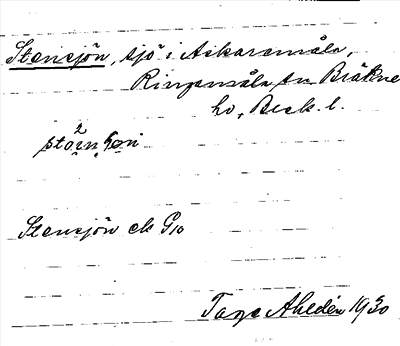 Stensjön, sjö i Askaremåla,
Ringamåla sn Bräkne
hd, Blek. l.
Stensjön ek G10
Tage Ahldén 1930